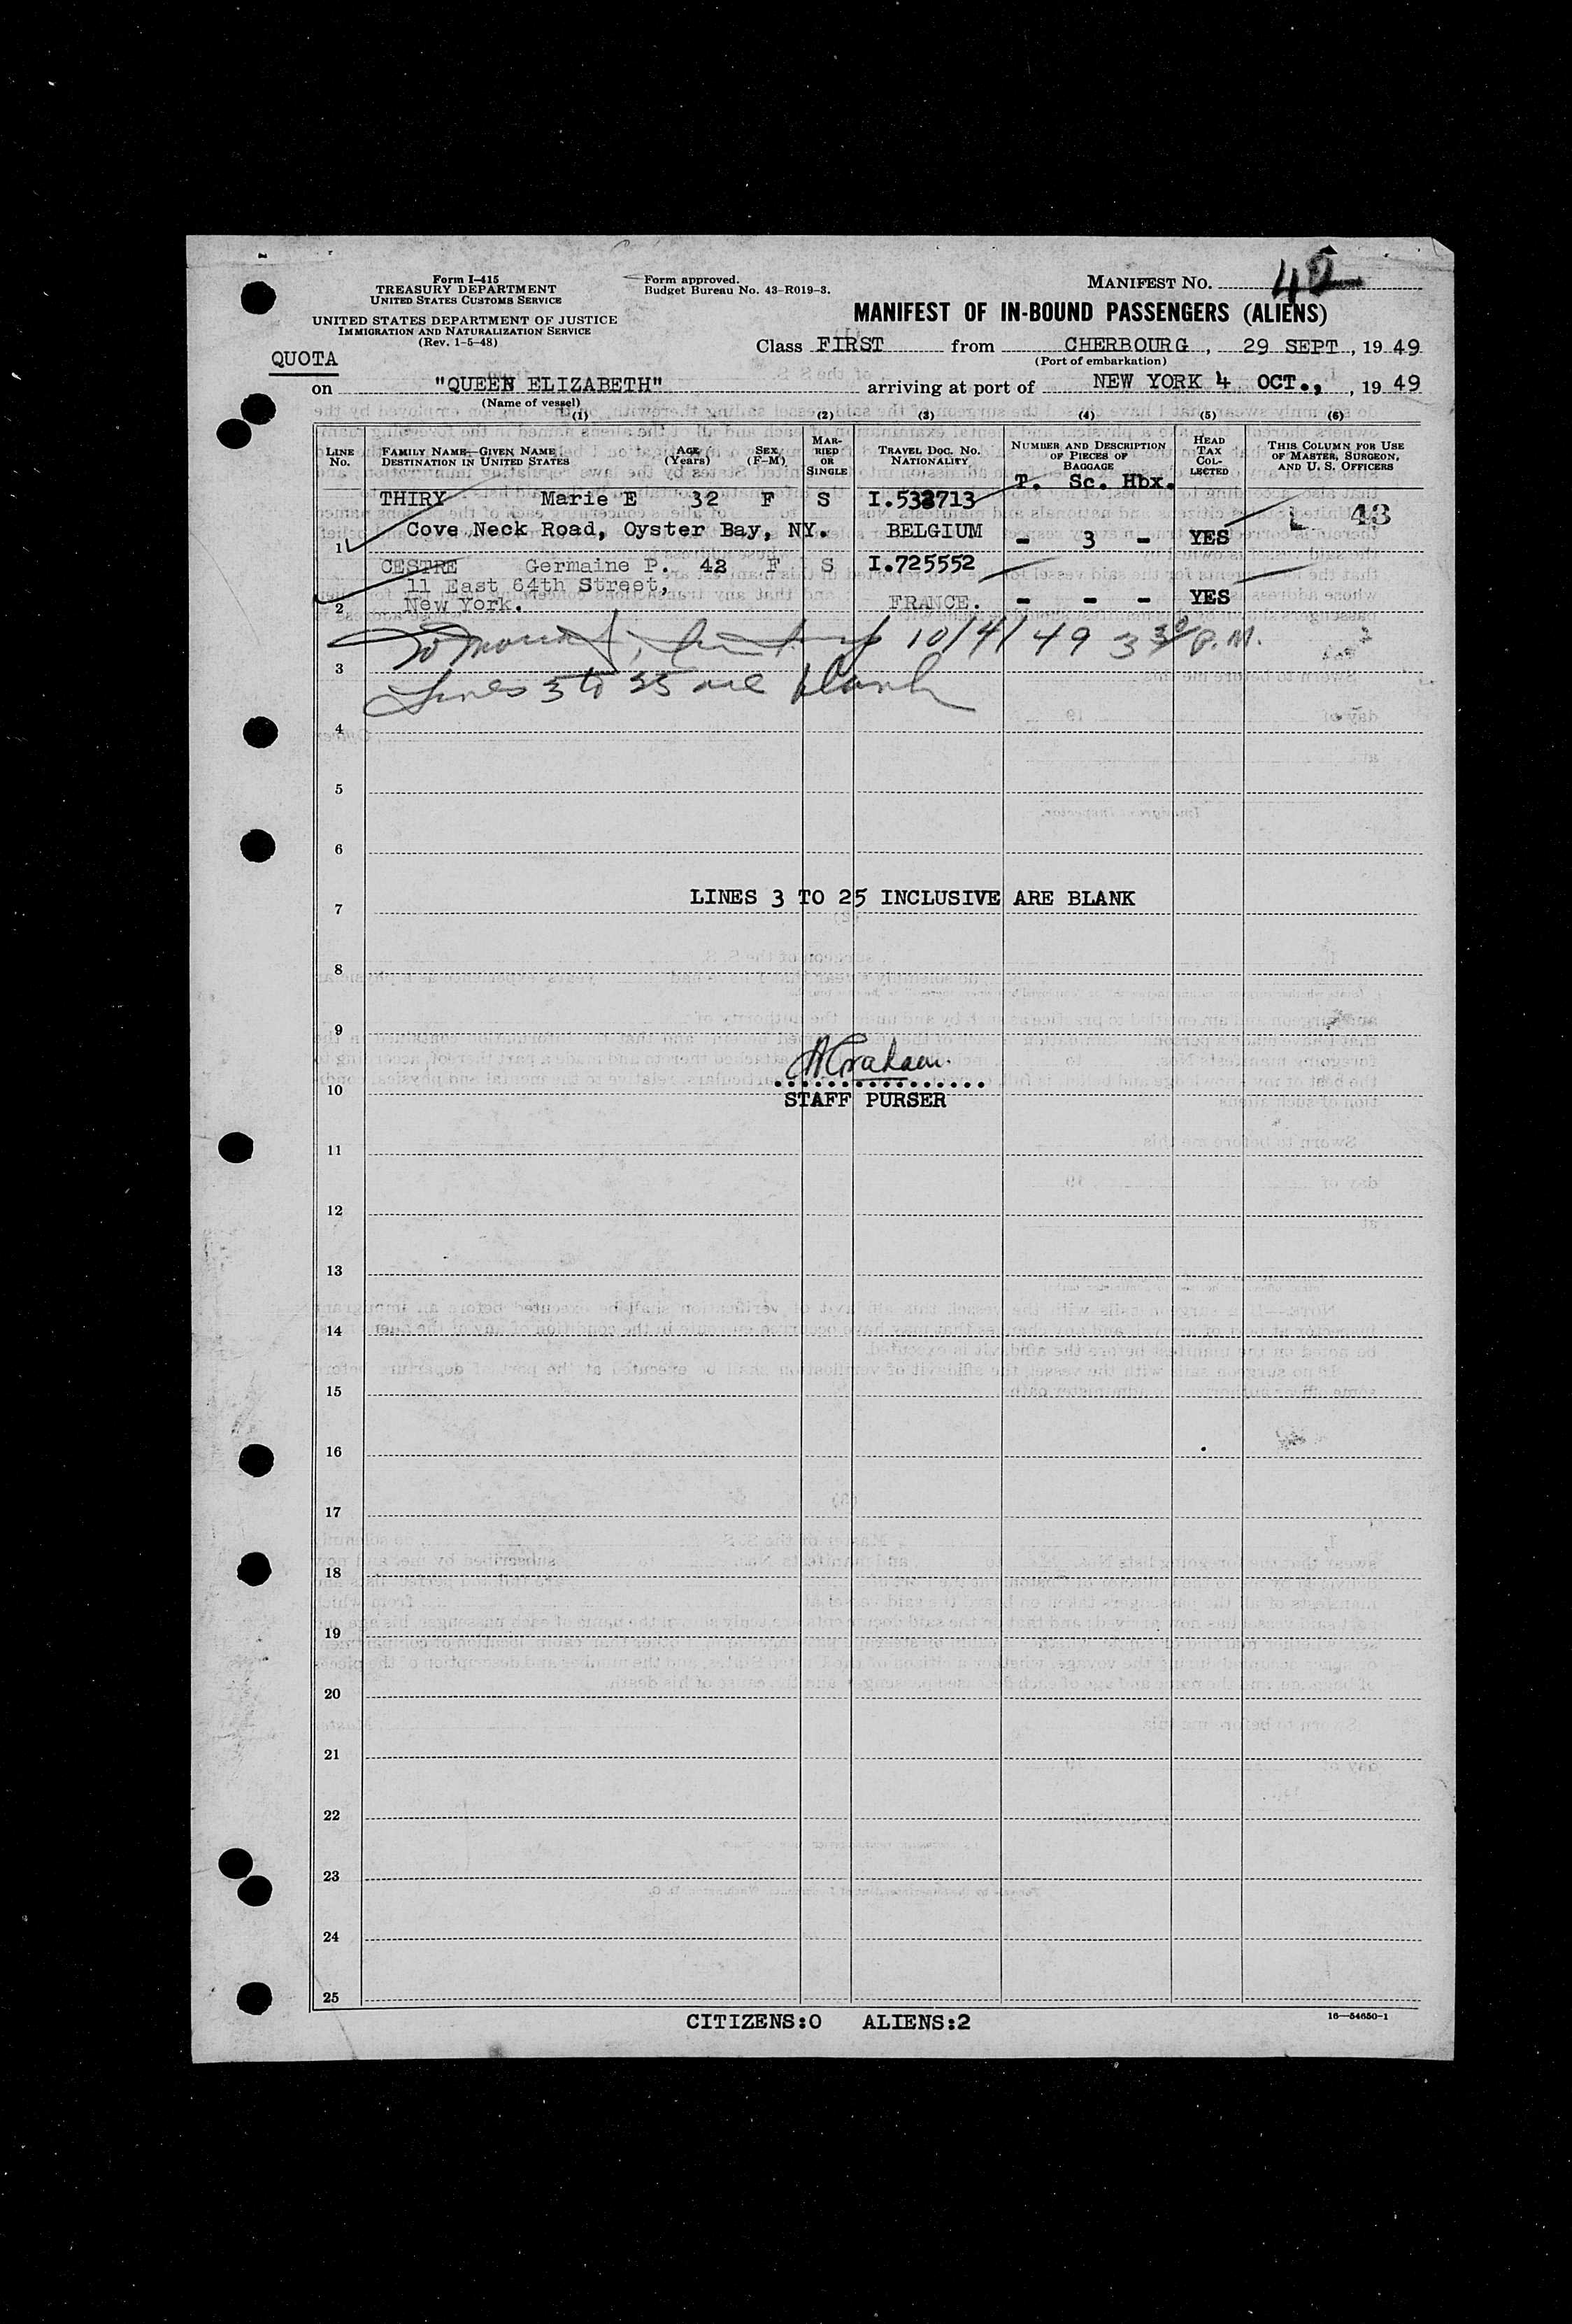 Form I-415
TREASURY DEPARTMENT
UNITED STATES CUSTOMS SERVICE
UNITED STATES DEPARTMENT OF JUSTICE
IMMIGRATION AND NATURALIZATION SERVICE
(Rev. 1-5-48)
Form approved.
Budget Bureau No. 43-R019-3.
MANIFEST NO.
MANIFEST OF IN-BOUND PASSENGERS (ALIENS)
QUOTA
Class FIRST from CHERBOURG, 29 SEPT, 1949
(Port of embarkation)
on "QUEEN ELIZABETH" arriving at port of NEW YORK 4 OCT., 1949
(Name of vessel)
(1) (2) (3) (4) (5) (6)
LINE No.
FAMILY NAME—GIVEN NAME
DESTINATION IN UNITED STATES
AGE (Years)
SEX (F-M)
MAR-RIED OR SINGLE
TRAVEL DOC. NO. NATIONALITY
NUMBER AND DESCRIPTION OF PIECES OF BAGGAGE
T. Sc. Hbx.
HEAD TAX COL-LECTED
THIS COLUMN FOR USE OF MASTER, SURGEON, AND U. S. OFFICERS
THIRY Marie E 32 F S I.533713
1 Cove Neck Road, Oyster Bay, NY. BELGIUM - 3 - YES L 43
CESTRE Germaine P. 42 F S I.725552
11 East 64th Street,
2 New York. FRANCE. - - - YES
10/4/49 3 30 P.M.
3
Lines 3 to 25 are blank
4
5
6
LINES 3 TO 25 INCLUSIVE ARE BLANK
7
8
9
AGraham.
10
STAFF PURSER
11
12
13
14
15
16
17
18
19
20
21
22
23
24
25
CITIZENS:0 ALIENS:2
16—54650-1